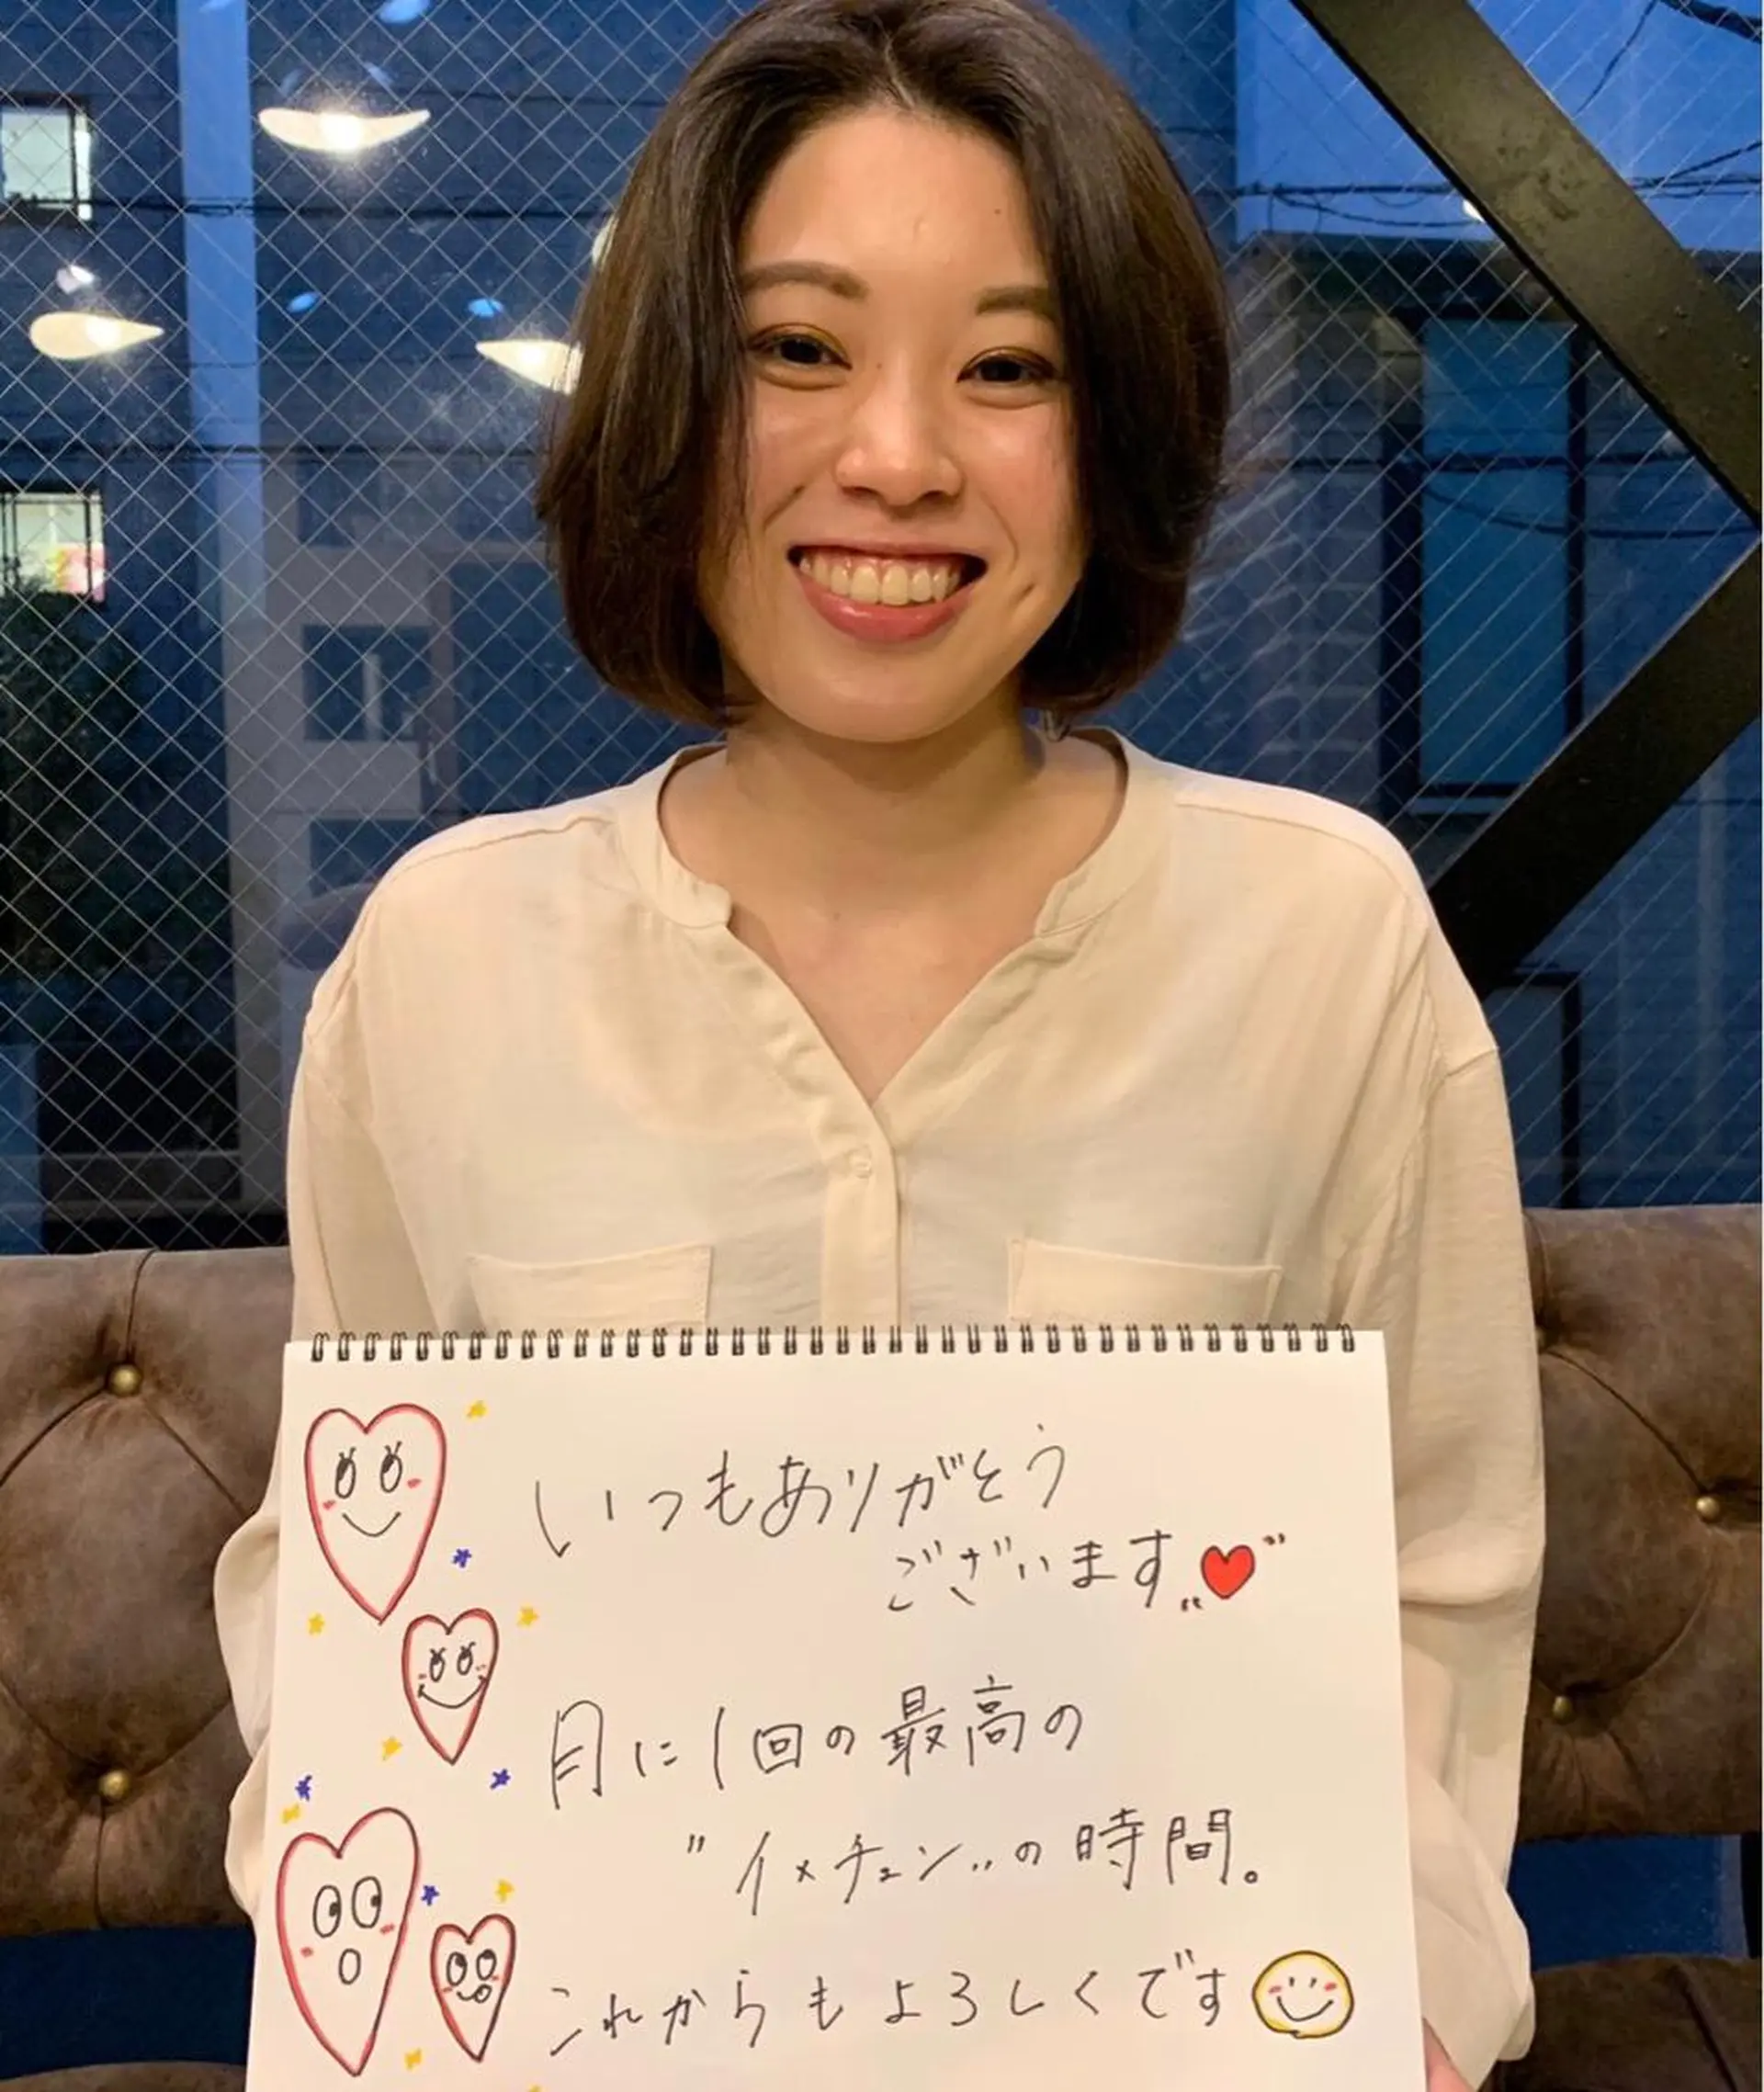 いつもありがとう
ございます
月に1回の最高の
"イメチェン"の時間。
これからもよろしくです